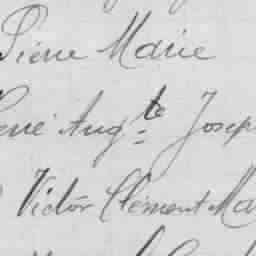 Pierre Marie
René Aug.te Joseph
Victor Clément Ma